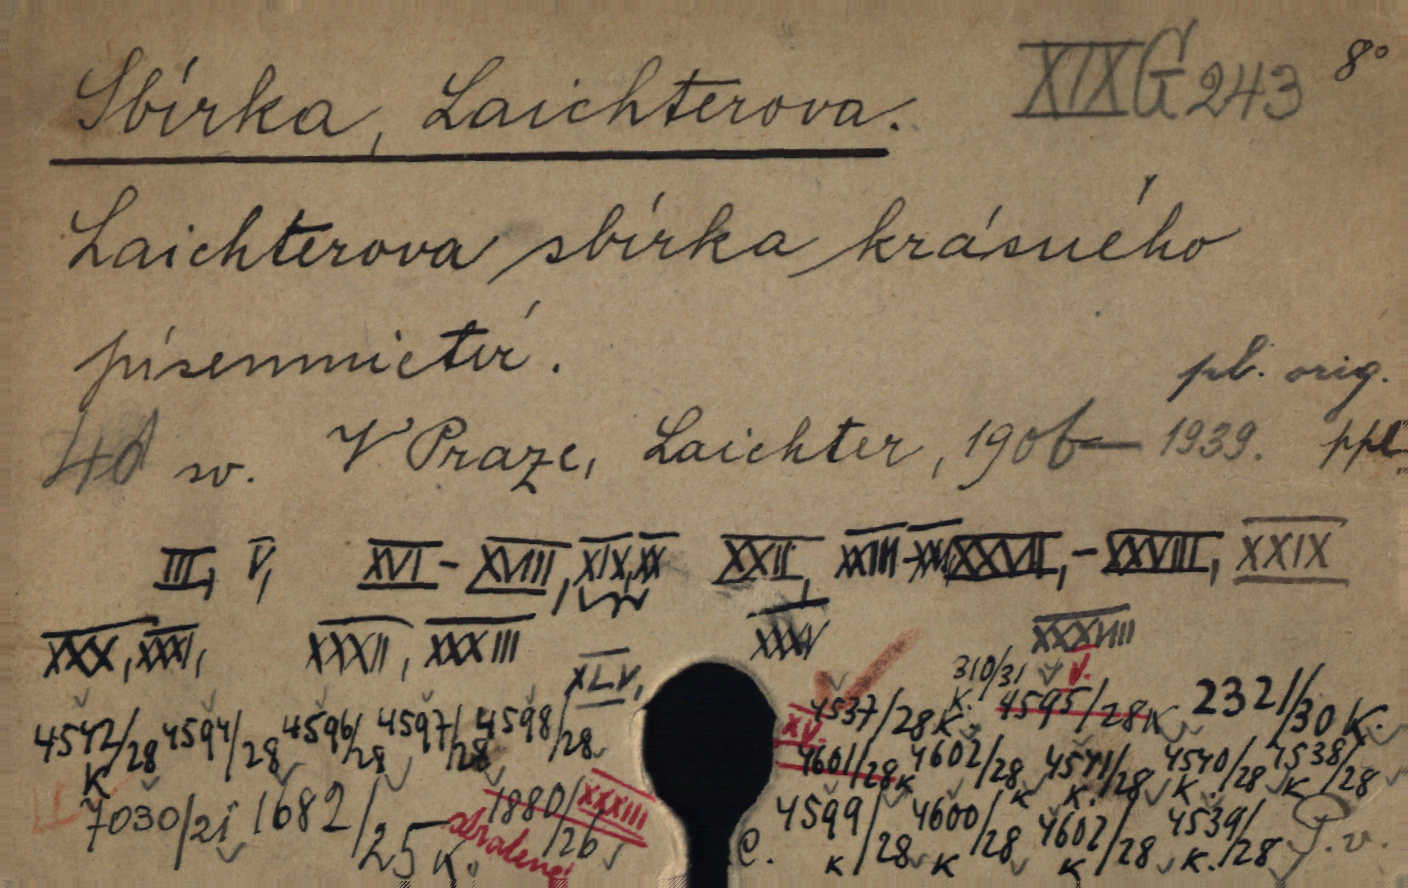 Sbírka, Laichterova. XIX G 243 8°
Laichterova sbírka krásného
písemnictví.
pl. orig.
40 sv. V Praze, Laichter, 1906 — 1939. ppl
III, V, XVI - XVIII, XIX, XX XXII, XXIII - XXVII, - XXVIII, XXIX
XXX, XXXI, XXXII, XXXIII XXXV XXXVIII
XLV, 310/31 V.
4542/28 4594/28 4596/28 4597/28 4598/28 XV. 4537/28 K K. 4595/28 K 2321/30 K.
K 4601/28 K 4602/28 K 4541/28 K. 4540/28 K. 4538/28 K
7030/21 1682/25 K. 1880/26 XXXIII 4599/28 K 4600/28 K 4602/28 K 4539/28 K.
ztracené! P. v.